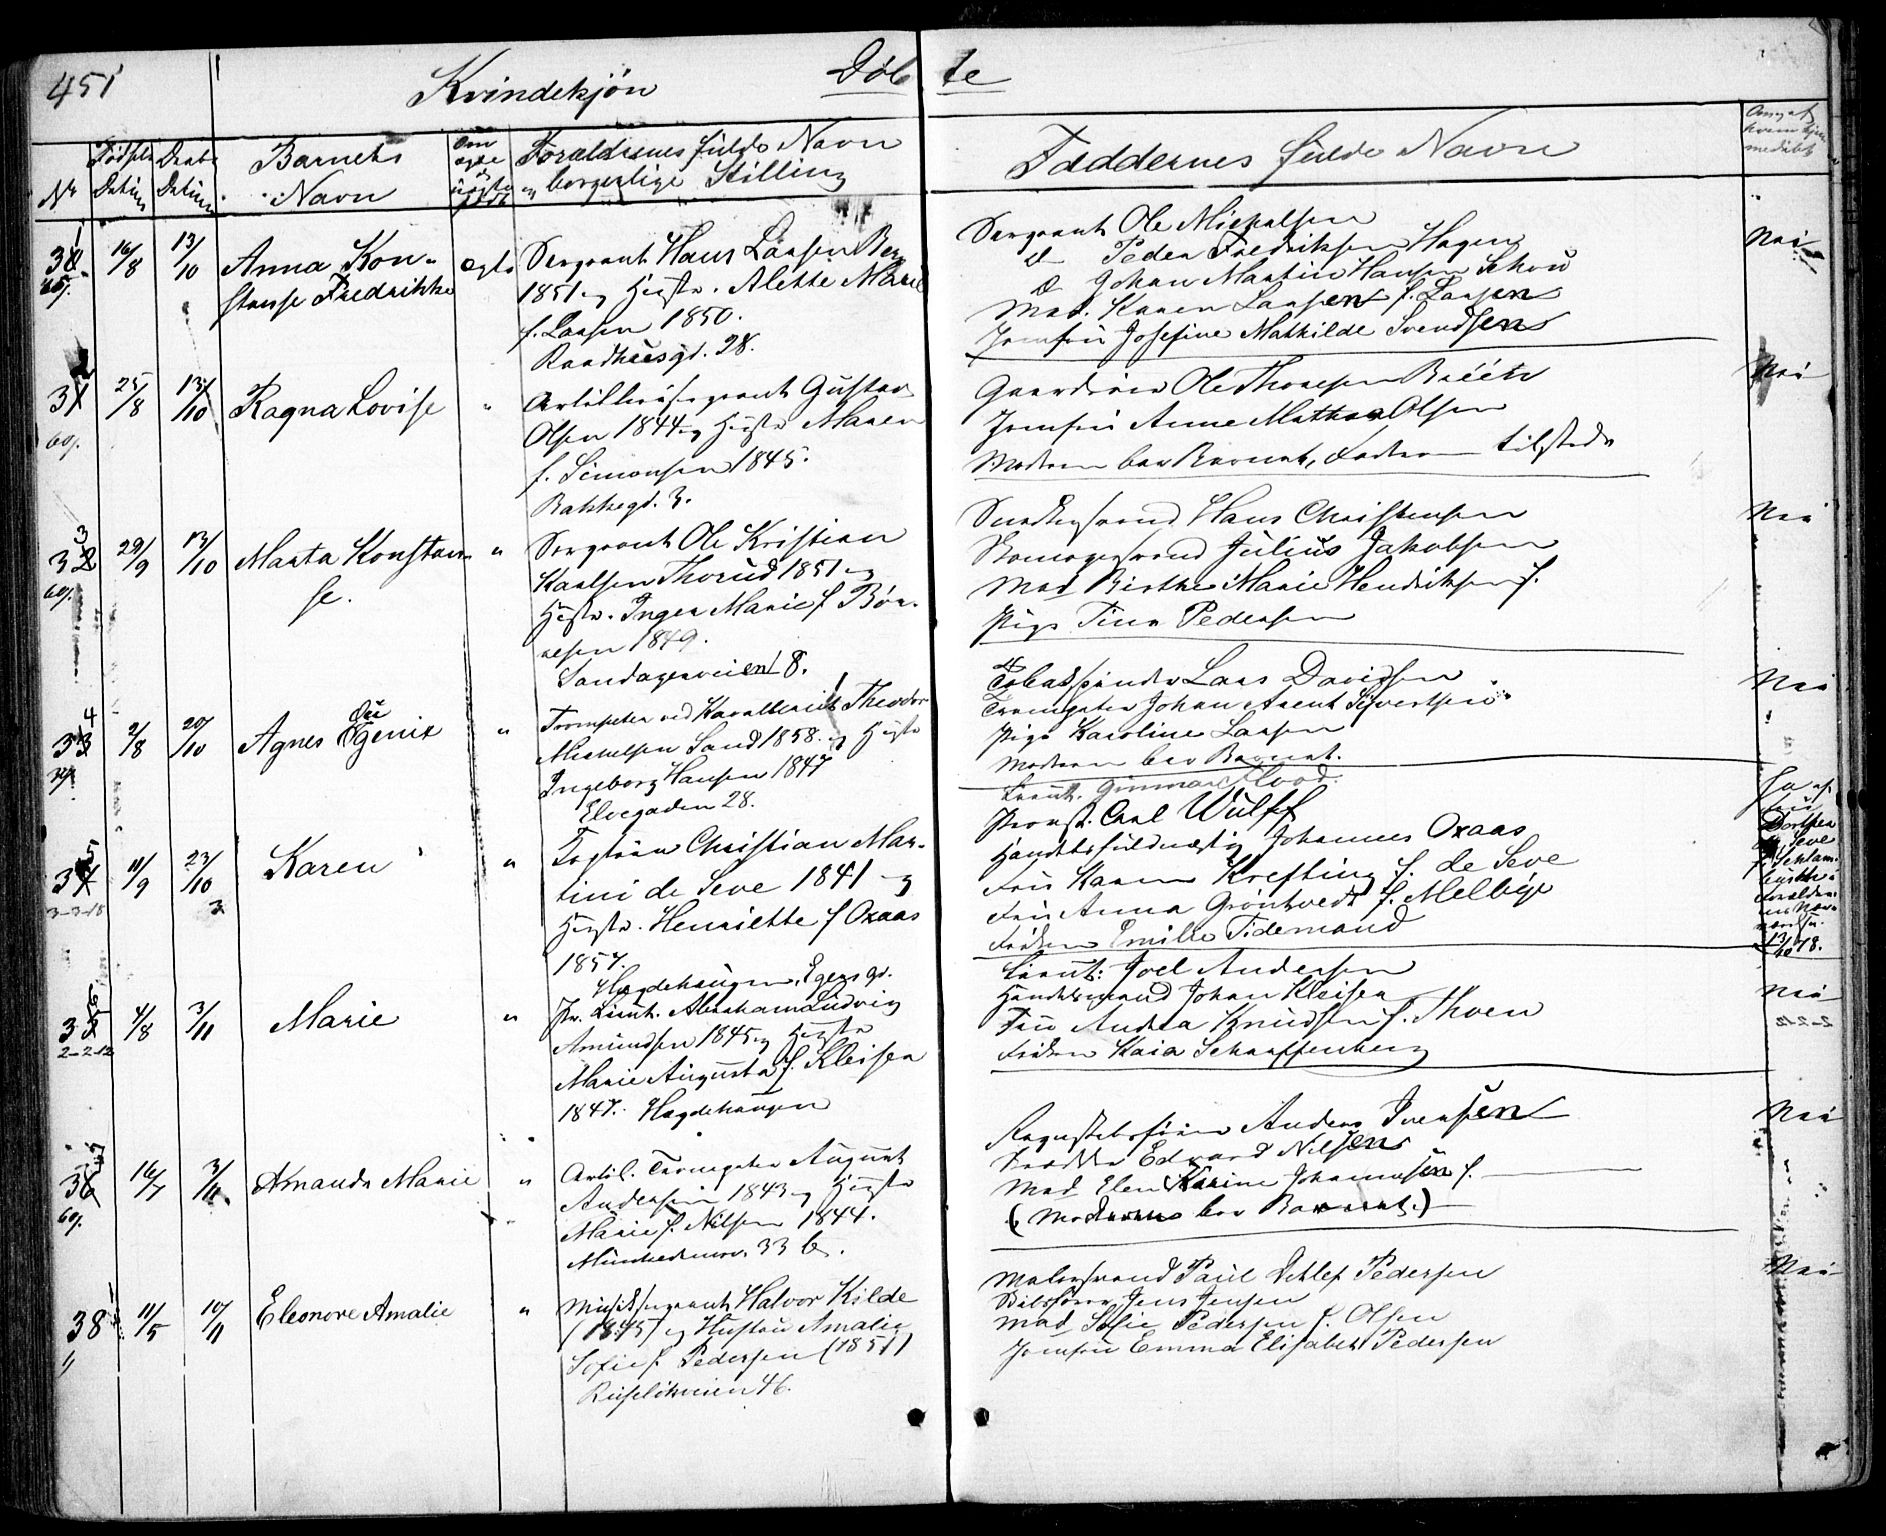 451
Kvindekjön
Döb te
Nr
Födsels Datum
Daabs Datum
Barnets Navn
ægte
Forældrenes fulde Navn
og borgerlige Stilling
Faddernes fulde Navn
31
16/8
13/10
Anna Kon-
stanse Fredrikke
ægte
Sergeant Hans Larsen Berg
1851 og Hustr. Alette Marie
f. Larsen 1850.
Raadhusgd. 28.
Sergeant Ole Mickelsen
d Peder Fredriksen Hagen
d Johan Martin Hansen Schou
Mad. Karen Larsen f. Larsen
Jomfru Josefine Mathilde Svendsen
Nei
32
60/.
25/8
13/10
Ragna Lovise
"
Artillerisergeant Gustav
Olsen 1844 og Hustr Maren
f. Simonsen 1845.
Bakkegd. 3.
Gaardeier Ole Thoresen
Jomfru Anne Mathea Olsen
Moderen bar Barnet, Faderen tilstede
Nei
33
60/.
29/9
13/10
Marta Konstan-
se.
"
Sergeant Ole Kristian
Karlsen Thorud 1851 og
Hustr. Inger Marie f Bör-
resen 1849.
Sandakerveien 8.
Snedkersvend Hans Christensen
Skomagersvend Julius Jakobsen
Mad Birthe Marie Hendriksen f.
Pige Tina Pedersen
Nei
34
2/8
20/10
Agnes Eugenie
"
Trompeter ved Kavalleriet Theodor
Mickelsen Sand 1858 og Hustr
Ingeborg Hansen 1847
Elvegaden 28.
Tobakspinder Lars Davidsen
Trompeter Johan Arent Sivertsen
Pige Karoline Larsen
Moderen bar Barnet.
Nei
35
3-3-18
11/9
23/10
Karen
"
Christian Mar-
tini de Seve 1841 og
Hustr. Henriette f Oxaas
1857.
Hægdehaugen, Egersgd.
Lieut. Gunnar Hood.
Provst. Carl Wulff
Handelsfuldmægtig Johannes Oxaas
Fru Karen Krefting f. de Seve
Fru Anna Gröntvedt f. Melbye
Fröken Emilie Tidemand
Ja af
Fru
Dorthea
de Seve
13/10 78.
36
2-2-12
4/8
3/11
Marie
"
Pr. Lieut. Abraham Ludvig
Amundsen 1845 og Hustr
Marie Augusta f. Kleisen
1847. Hægdehaugen
Lieut: Joel Andersen
Handelsmand Johan Kleisen
Fru Andrea Knudsen f. Thoen
Fröken Kaia Scharffenberg
Nei
37
60/.
16/7
3/11
Amanda Marie
"
Artil. Trompeter August
Andersen 1843 og Hustr
Marie f. Nilsen 1844.
Munkedamsv. 33 b.
Anders Iversen
Skrædder Edvard Nilsen
Mad Elen Karine Johannesen f.
(Moderen bar Barnet.)
Nei
38
11/5
10/11
Eleonore Amalie
"
Musiksergeant Halvor Kilde
(1845) og Hustru Amalie
Sofie f. Pedersen (1851)
Ruselökveien 46.
Malersvend Paul Detlef Pedersen
Jens Jensen
Mad Sofie Pedersen f. Olsen
Jomfru Emma Elisabeth Pedersen
Nei